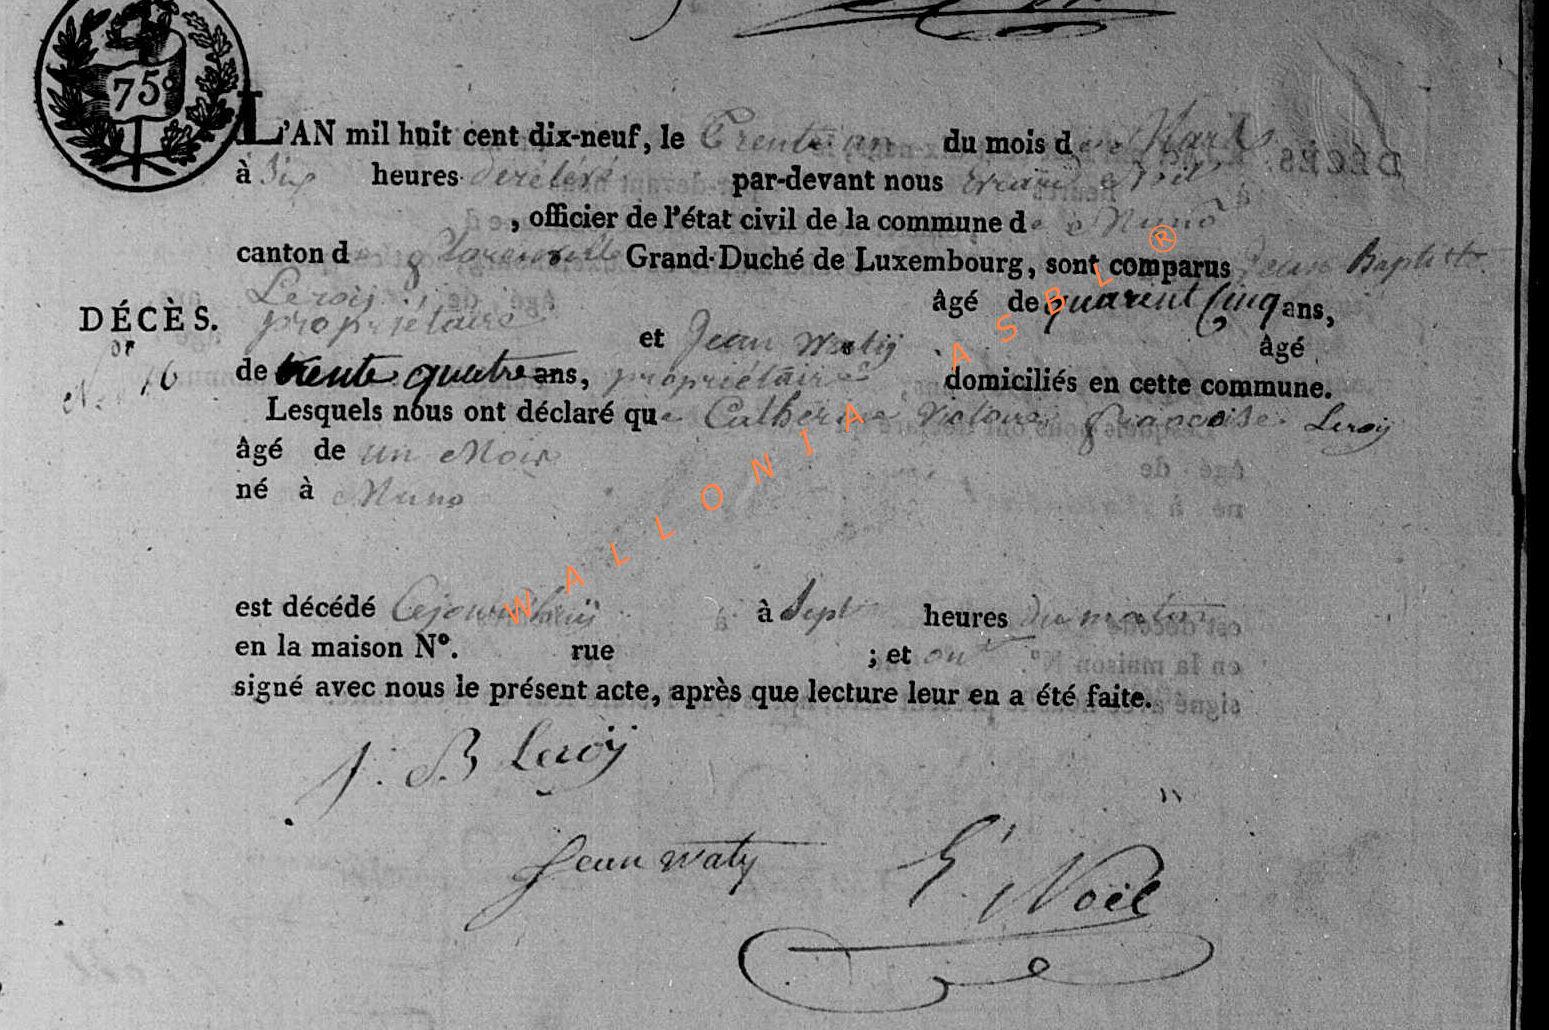 75c
L'AN mil huit cent dix-neuf, le Trente un du mois de Mars
à Six heures de rélevé par-devant nous Erard Noël
, officier de l'état civil de la commune de Muno
canton de florenville Grand-Duché de Luxembourg, sont comparus Jean Baptiste
Leroij âgé de quarent Cinq ans,
DÉCÈS.
propriétaire et Jean Watij âgé
No 16
de trente quatre ans, propriétaire domiciliés en cette commune.
Lesquels nous ont déclaré que Catherine Victoire françoise Leroij
âgé de un Mois
né à Muno
est décédé Cejourd'huij à Sept heures du matin
en la maison No. rue ; et ont
signé avec nous le présent acte, après que lecture leur en a été faite.
J. B Leroÿ
Jean waty
E. Noël
WALLONIA ASBL ®